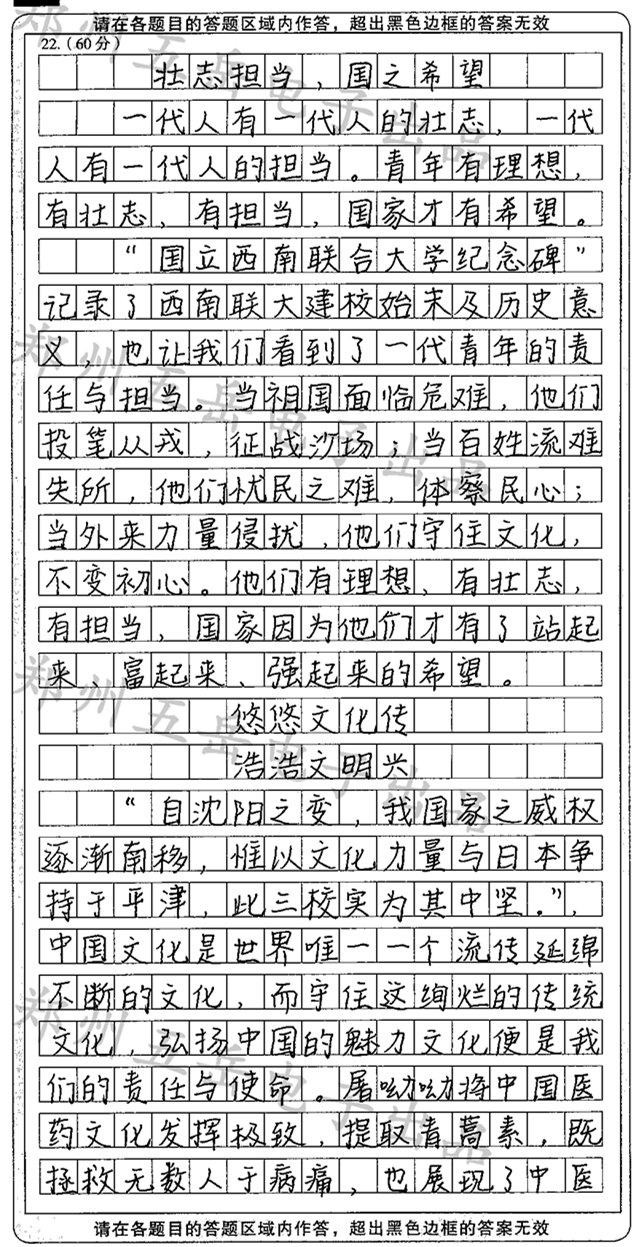 请在各题目的答题区域内作答，超出黑色边框的答案无效
22.（60分）
壮志担当，国之希望
一代人有一代人的壮志，一代
人有一代人的担当。青年有理想，
有壮志，有担当，国家才有希望。
“国立西南联合大学纪念碑”
记录了西南联大建校始末及历史意
义，也让我们看到了一代青年的责
任与担当。当祖国面临危难，他们
投笔从戎，征战沙场；当百姓流难
失所，他们忧民之难，体察民心；
当外来力量侵扰，他们守住文化，
不变初心。他们有理想，有壮志，
有担当，国家因为他们才有了站起
来、富起来、强起来的希望。
悠悠文化传
浩浩文明兴
“自沈阳之变，我国家之威权
逐渐南移，惟以文化力量与日本争
持于平津，此三校实为其中坚.”，
中国文化是世界唯一一个流传延绵
不断的文化，而守住这绚烂的传统
文化，弘扬中国的魅力文化便是我
们的责任与使命。屠呦呦将中国医
药文化发挥极致，提取青蒿素，既
拯救无数人于病痛，也展现了中医
请在各题目的答题区域内作答，超出黑色边框的答案无效
郑州五岳电子出品
郑州五岳电子出品
郑州五岳电子出品
郑州五岳电子出品